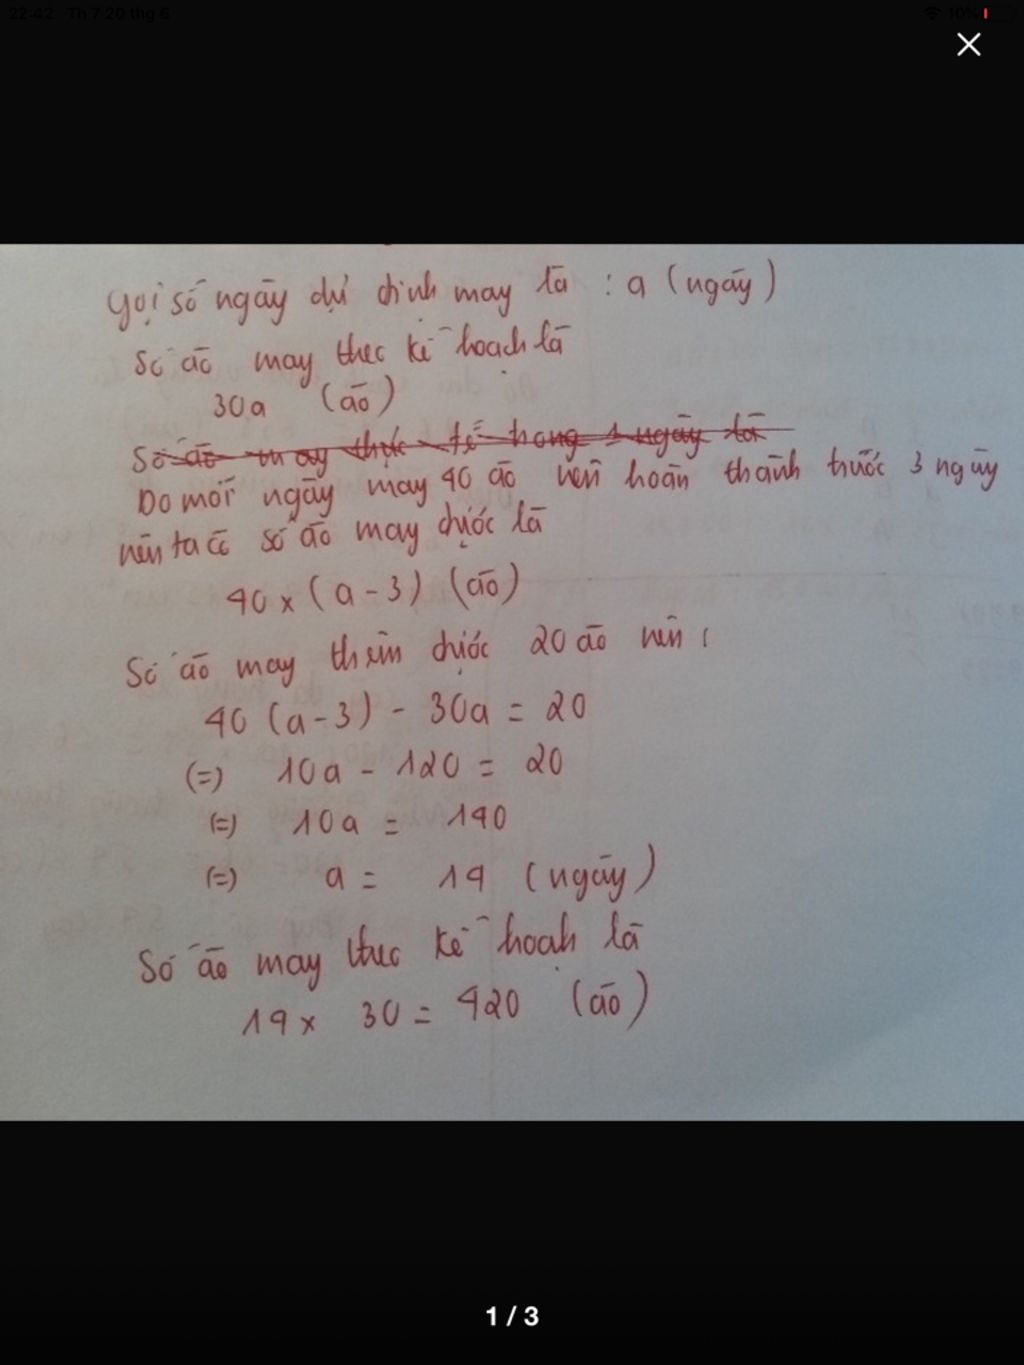 22:42 Th 7 20 thg 6
10%
Gọi số ngày dự định may là : a (ngày)
Số áo may theo kế hoạch là
30a (áo)
Số áo may thực tế trong 1 ngày là
Do mỗi ngày may 40 áo nên hoàn thành trước 3 ngày
nên ta có số áo may được là
40 x (a - 3) (áo)
Số áo may thêm được 20 áo nên :
40 (a - 3) - 30a = 20
(=) 10a - 120 = 20
(=) 10a = 140
(=) a = 14 (ngày)
Số áo may theo kế hoạh là
14 x 30 = 420 (áo)
1 / 3